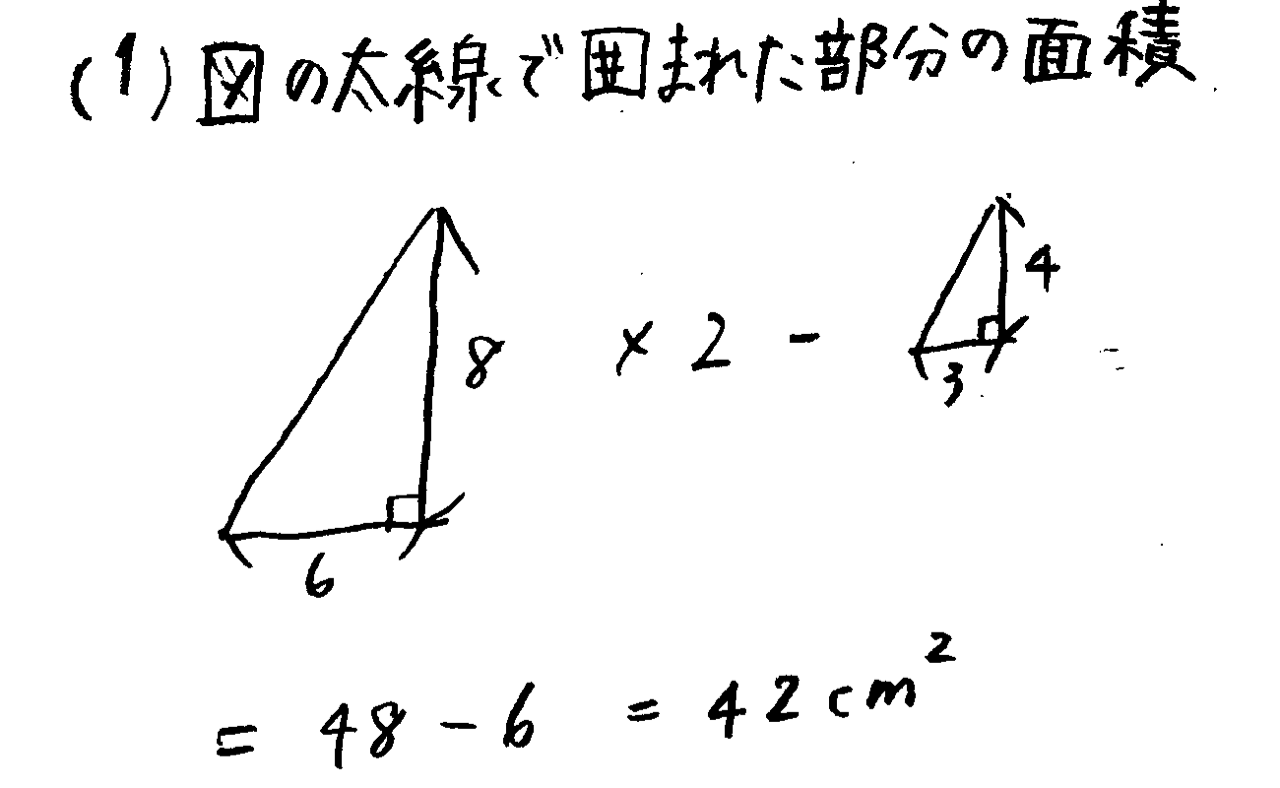 (1) 図の太線で囲まれた部分の面積
8 × 2 - 4 =
6 3
= 48 - 6 = 42 cm²